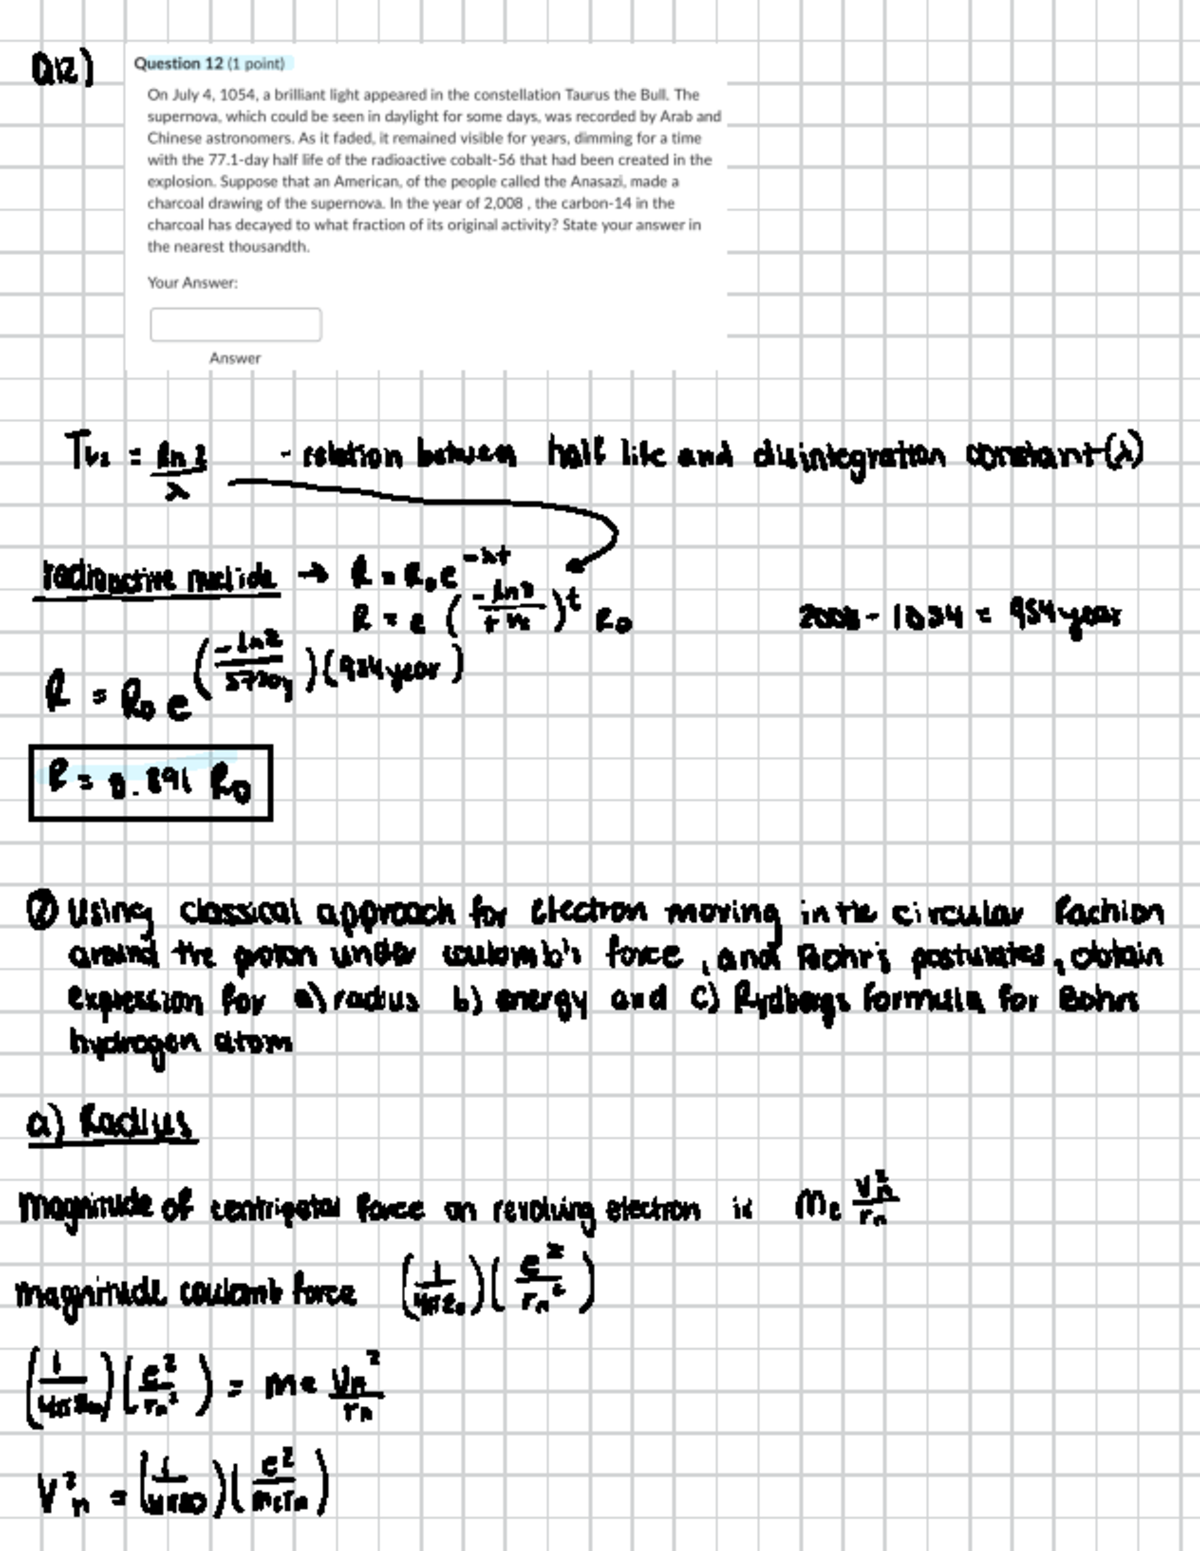 Q12)
Question 12 (1 point)
On July 4, 1054, a brilliant light appeared in the constellation Taurus the Bull. The
supernova, which could be seen in daylight for some days, was recorded by Arab and
Chinese astronomers. As it faded, it remained visible for years, dimming for a time
with the 77.1-day half life of the radioactive cobalt-56 that had been created in the
explosion. Suppose that an American, of the people called the Anasazi, made a
charcoal drawing of the supernova. In the year of 2,008 , the carbon-14 in the
charcoal has decayed to what fraction of its original activity? State your answer in
the nearest thousandth.
Your Answer:
Answer
T1/2 = ln 2 / λ - relation between half life and disintegration constant (λ)
radioactive nuclide → R = R₀e^(-λt)
R = e^(-ln2 / t½)^t R₀
2008 - 1054 = 954 year
R = R₀ e^(-ln2 / 5730y)(954 year)
R = 0.891 R₀
② Using classical approach for electron moving in the circular fachion
around the proton under coulomb's force, and Bohr's postulates, obtain
expression for a) radius b) energy and c) Rydbergs formula for Bohrs
hydrogen atom
a) Radius
magnitude of centripetal force on revolving electron is me vn²/rn
magnitude coulomb force (1/4πε₀)(e²/rn²)
(1/4πε₀)(e²/rn²) = me vn²/rn
v²n = (1/4πε₀)(e²/me rn)